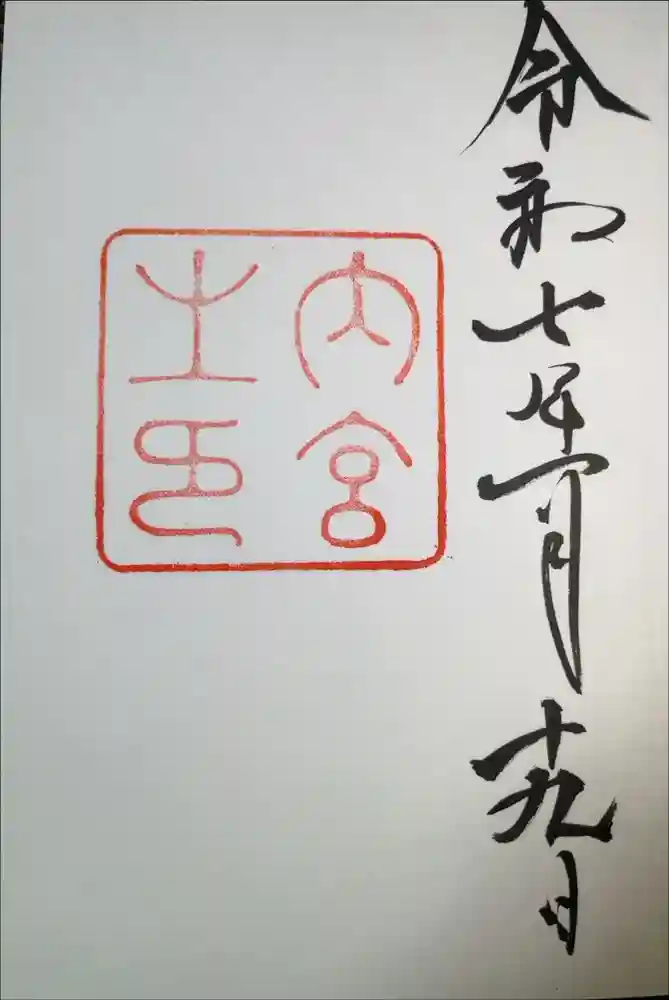 令和七年一月十九日
内宮
之印